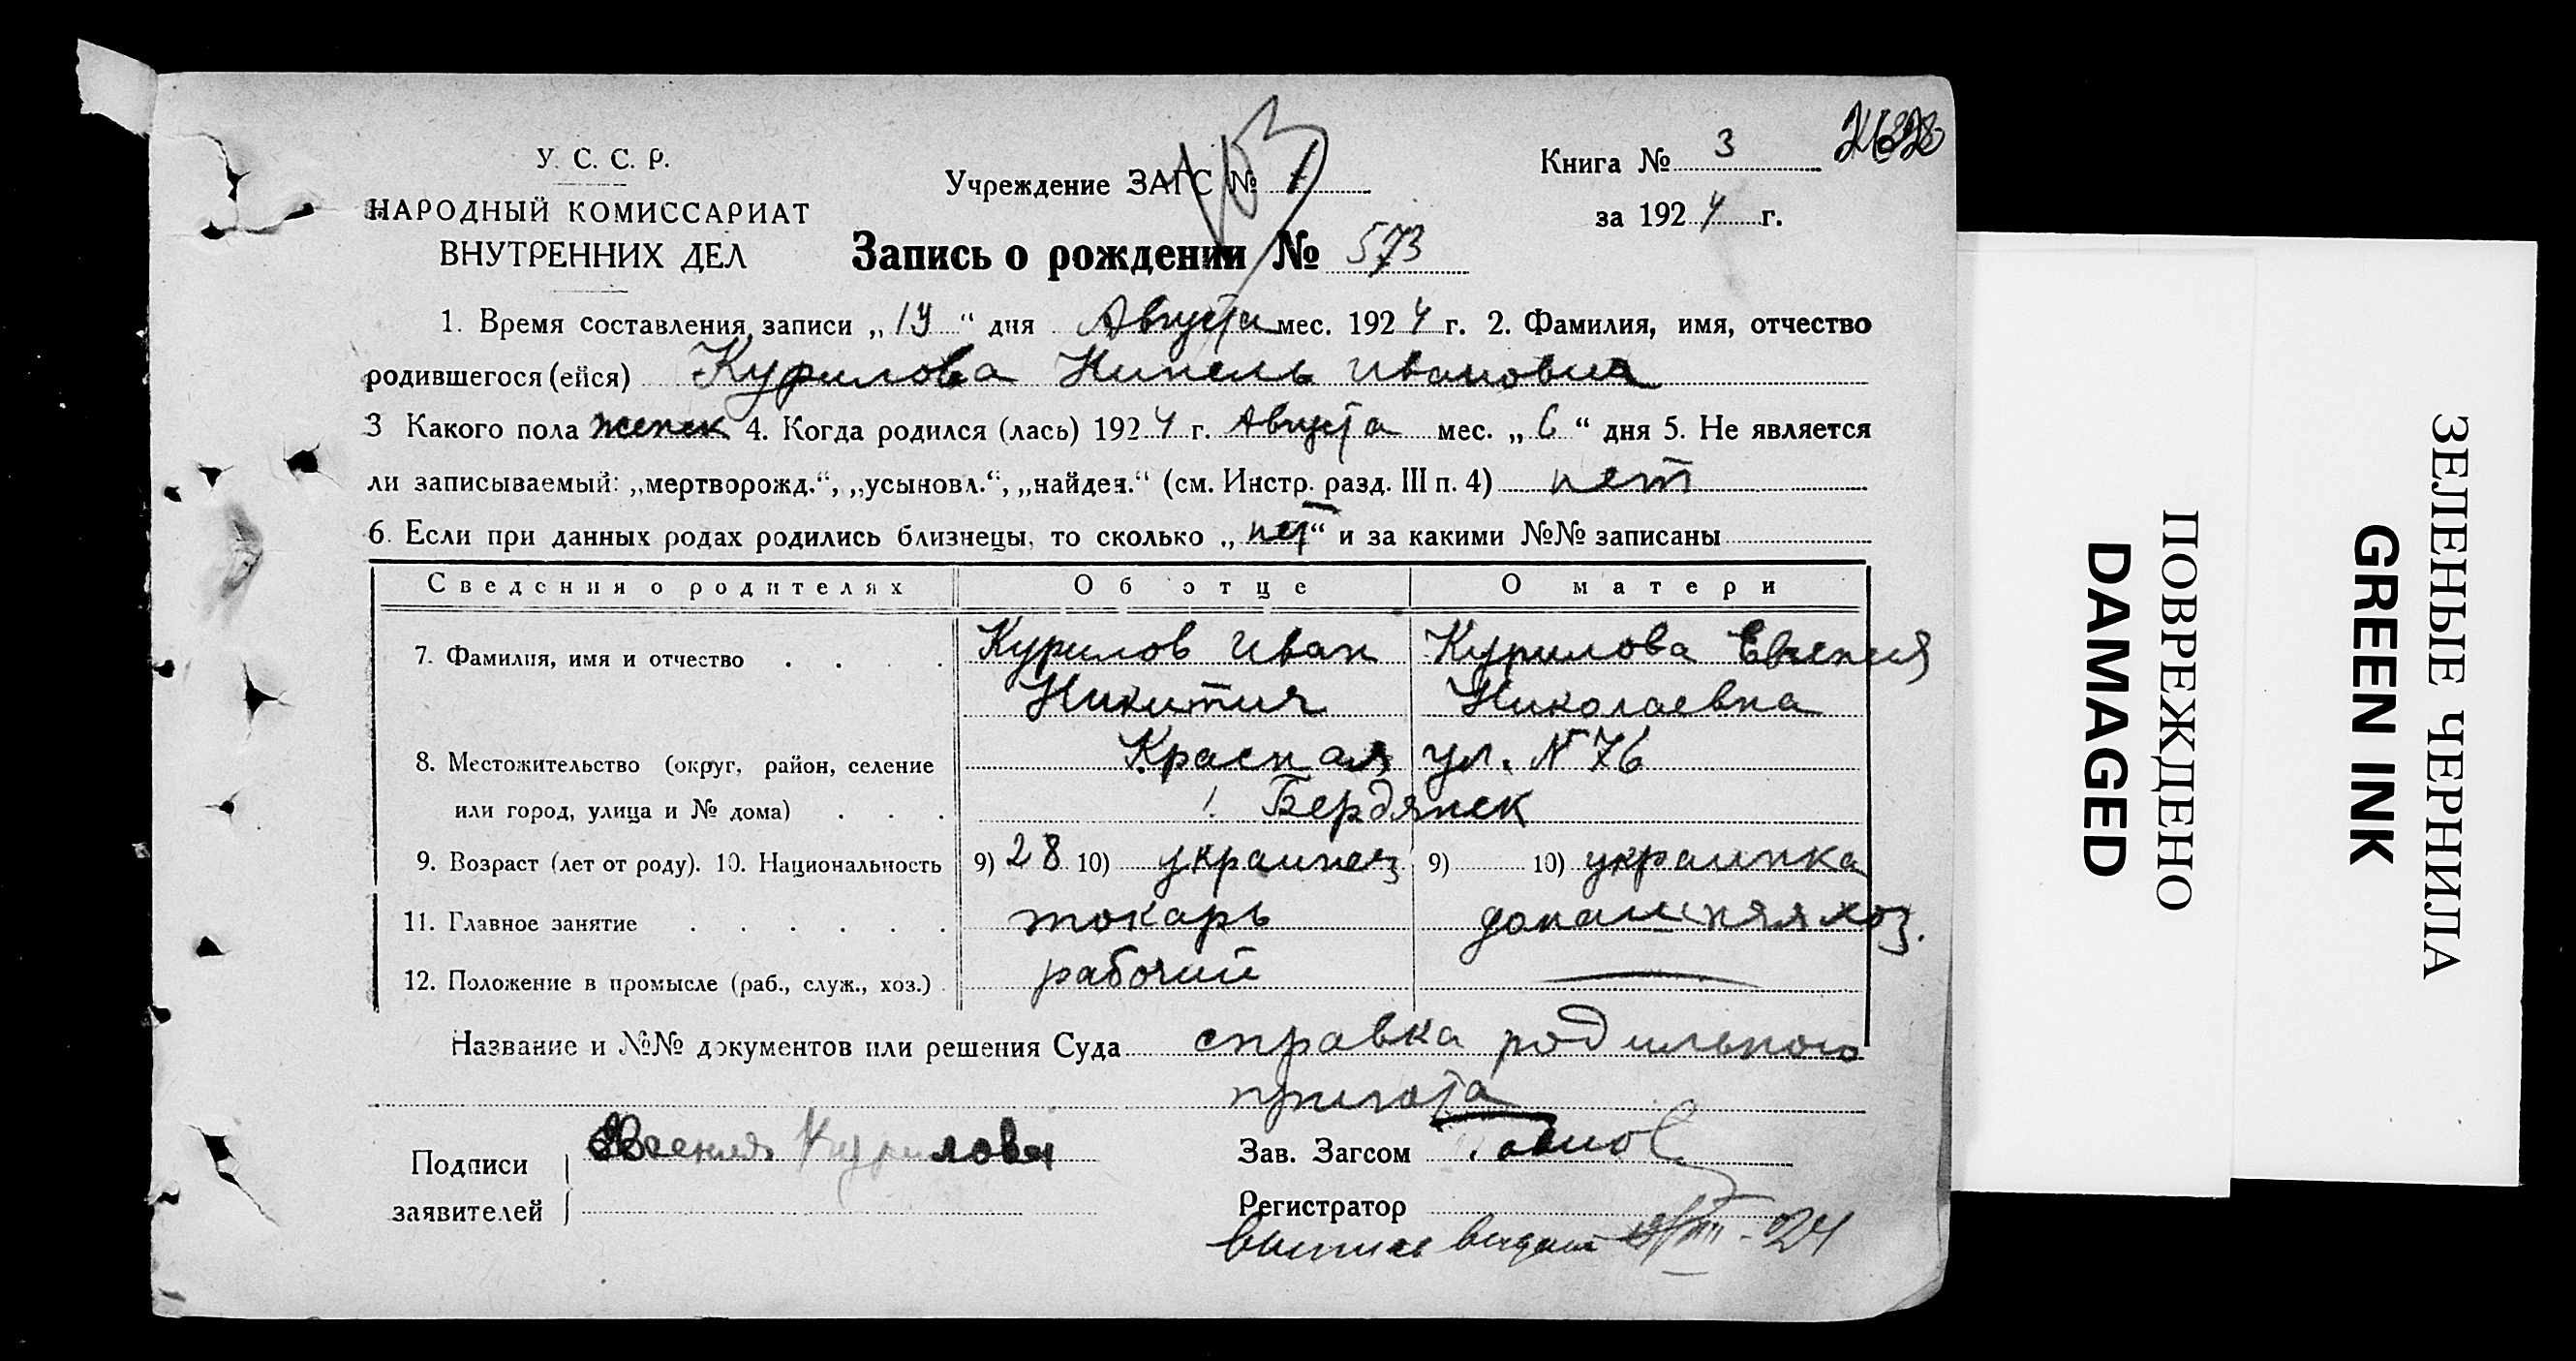 У. С. С. Р.
НАРОДНЫЙ КОМИССАРИАТ
ВНУТРЕННИХ ДЕЛ
Учреждение ЗАГС № 1
Книга № 3
за 1924 г.
Запись о рождении № 573
1. Время составления записи „ “ дня Августа мес. 1924 г. 2. Фамилия, имя, отчество
родившегося (ейся) Курилова Нинель Ивановна
3 Какого пола женск 4. Когда родился (лась) 1924 г. Августа мес. „6“ дня 5. Не является
ли записываемый: „мертворожд.“, „усыновл.“, „найден.“ (см. Инстр. разд. III п. 4) нет
6. Если при данных родах родились близнецы, то сколько „нет“ и за какими №№ записаны
Сведения о родителях Об отце О матери
7. Фамилия, имя и отчество . . . . Курилов Иван Курилова Евгения
Никитич Николаевна
8. Местожительство (округ, район, селение Красная ул. N 76
или город, улица и № дома) . . . Бердянск
9. Возраст (лет от роду). 10. Национальность 9) 28 10) украинец 9) 10) украинка
11. Главное занятие . . . . . . токарь домашняя хоз.
12. Положение в промысле (раб., служ., хоз.) . рабочий —
Название и №№ документов или решения Суда справка родильного
приюта
Подписи заявителей Евгения Курилова
Зав. Загсом
Регистратор
выпись выдана -24
ПОВРЕЖДЕНО
DAMAGED
ЗЕЛЕНЫЕ ЧЕРНИЛА
GREEN INK